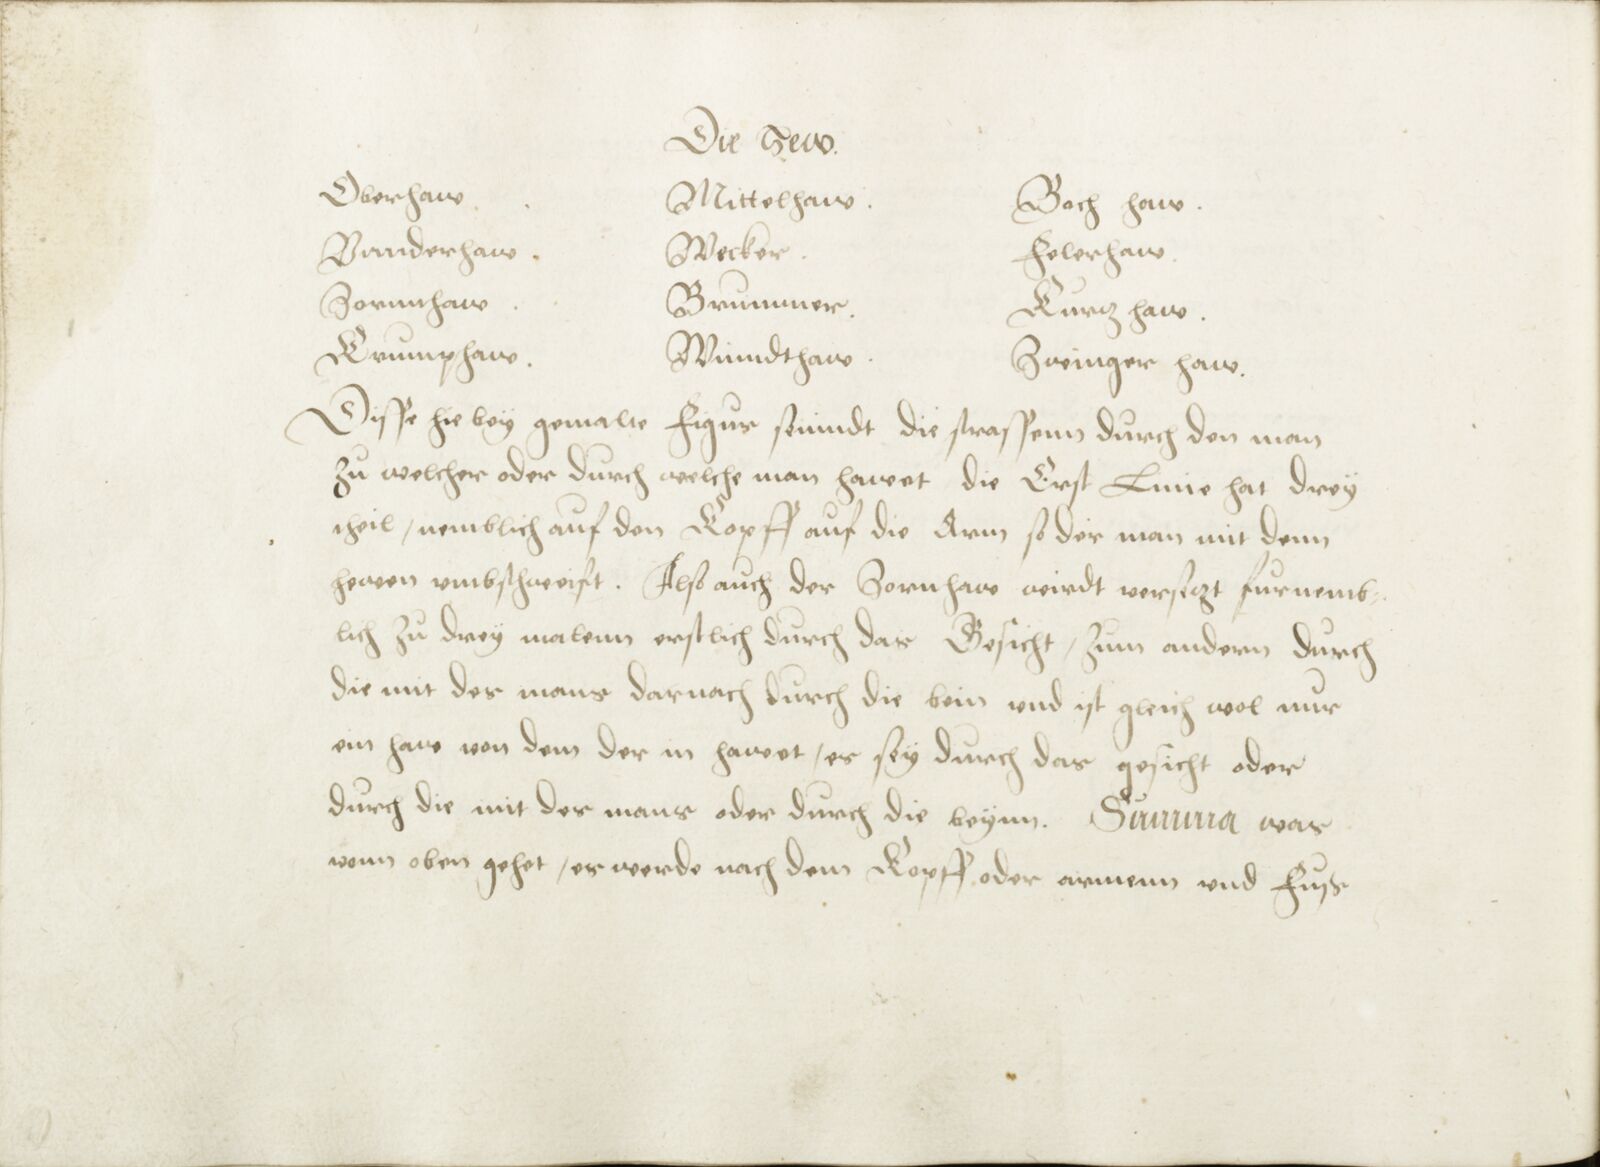 Die Hew.
Oberhaw. Mittelhaw. Boch haw.
Vnnderhaw. Wecker. Felerhaw.
Zornnhaw. Brummer. Kurtz haw.
Krumphaw. Wünndthaw. Zwinger haw.
Disse hie bey gemalte Figur seinndt die strassenn durch den man
zu welcher oder durch welche man hawet die Erst Linie hat drey
theil / nemblich auf den Kopff auf die Arm so der man mit denn
hewen vmbschweift. Also auch der Zornhaw wirdt versetzt furnemb-
lich zu drey malenn erstlich durch das Gesicht / zum andern durch
die mit des mans darnach durch die bein vnd ist gleich wol nur
ein haw von dem der in hawet / es sey durch das gesicht oder
durch die mit des mans oder durch die beynn. Summa was
vonn oben gehet / es werde nach dem Kopff oder armenn vnd Fuss